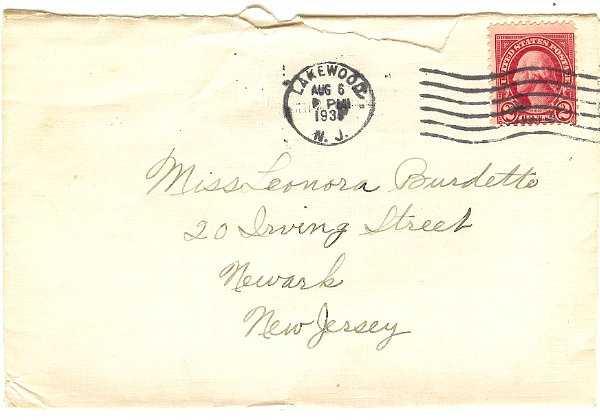 UNITED STATES POSTAGE
LAKEWOOD
AUG 6
PM
N. J.
2 2
Miss Leonora Burdette
20 Irving Street
Newark
New Jersey